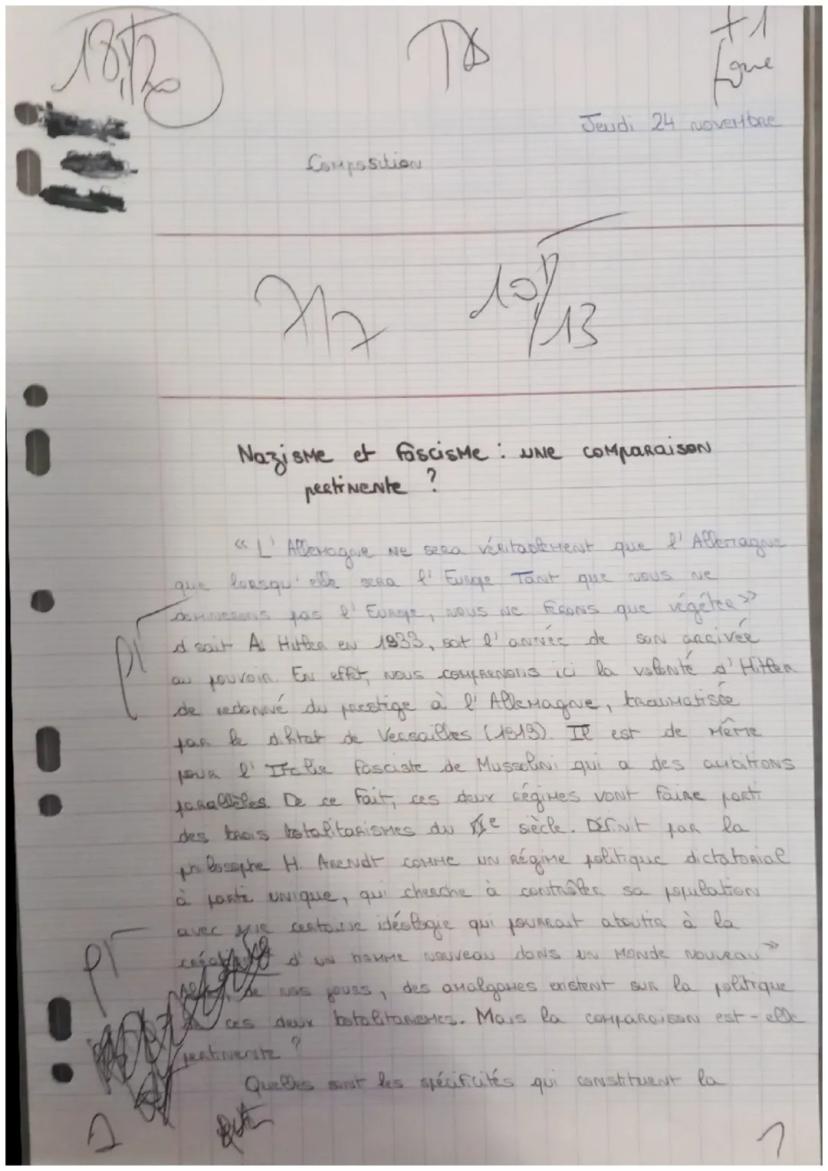 18,5/20 TB +1
Jeudi 24 novembre
Composition
7/7 10,5/13
Nazisme et fascisme : une comparaison
pertinente ?
« L'Allemagne ne sera véritablement que l'Allemagne
que lorsqu'elle sera l'Europe Tant que nous ne
pas l'Europe, nous ne ferons que végéter »
disait A. Hitler en 1933, soit l'année de son arrivée
au pouvoir. En effet, nous comprenons ici la volonté d'Hitler
de redonné du prestige à l'Allemagne, traumatisée
par le diktat de Versailles (1919). Il est de même
pour l'Italie fasciste de Mussolini qui a des ambitions
parallèles. De ce fait, ces deux régimes vont faire parti
des trois totalitarismes du XXe siècle. Définit par la
philosophe H. Arendt comme un régime politique dictatorial
à parti unique, qui cherche à contrôler sa population
avec une certaine idéologie qui pourrait aboutir à la
d'un homme nouveau dans un monde nouveau »
de nos jours, des amalgames existent sur la politique
ces deux totalitarismes. Mais la comparaison est-elle
pertinente ?
Quelles sont les spécificités qui constituent la